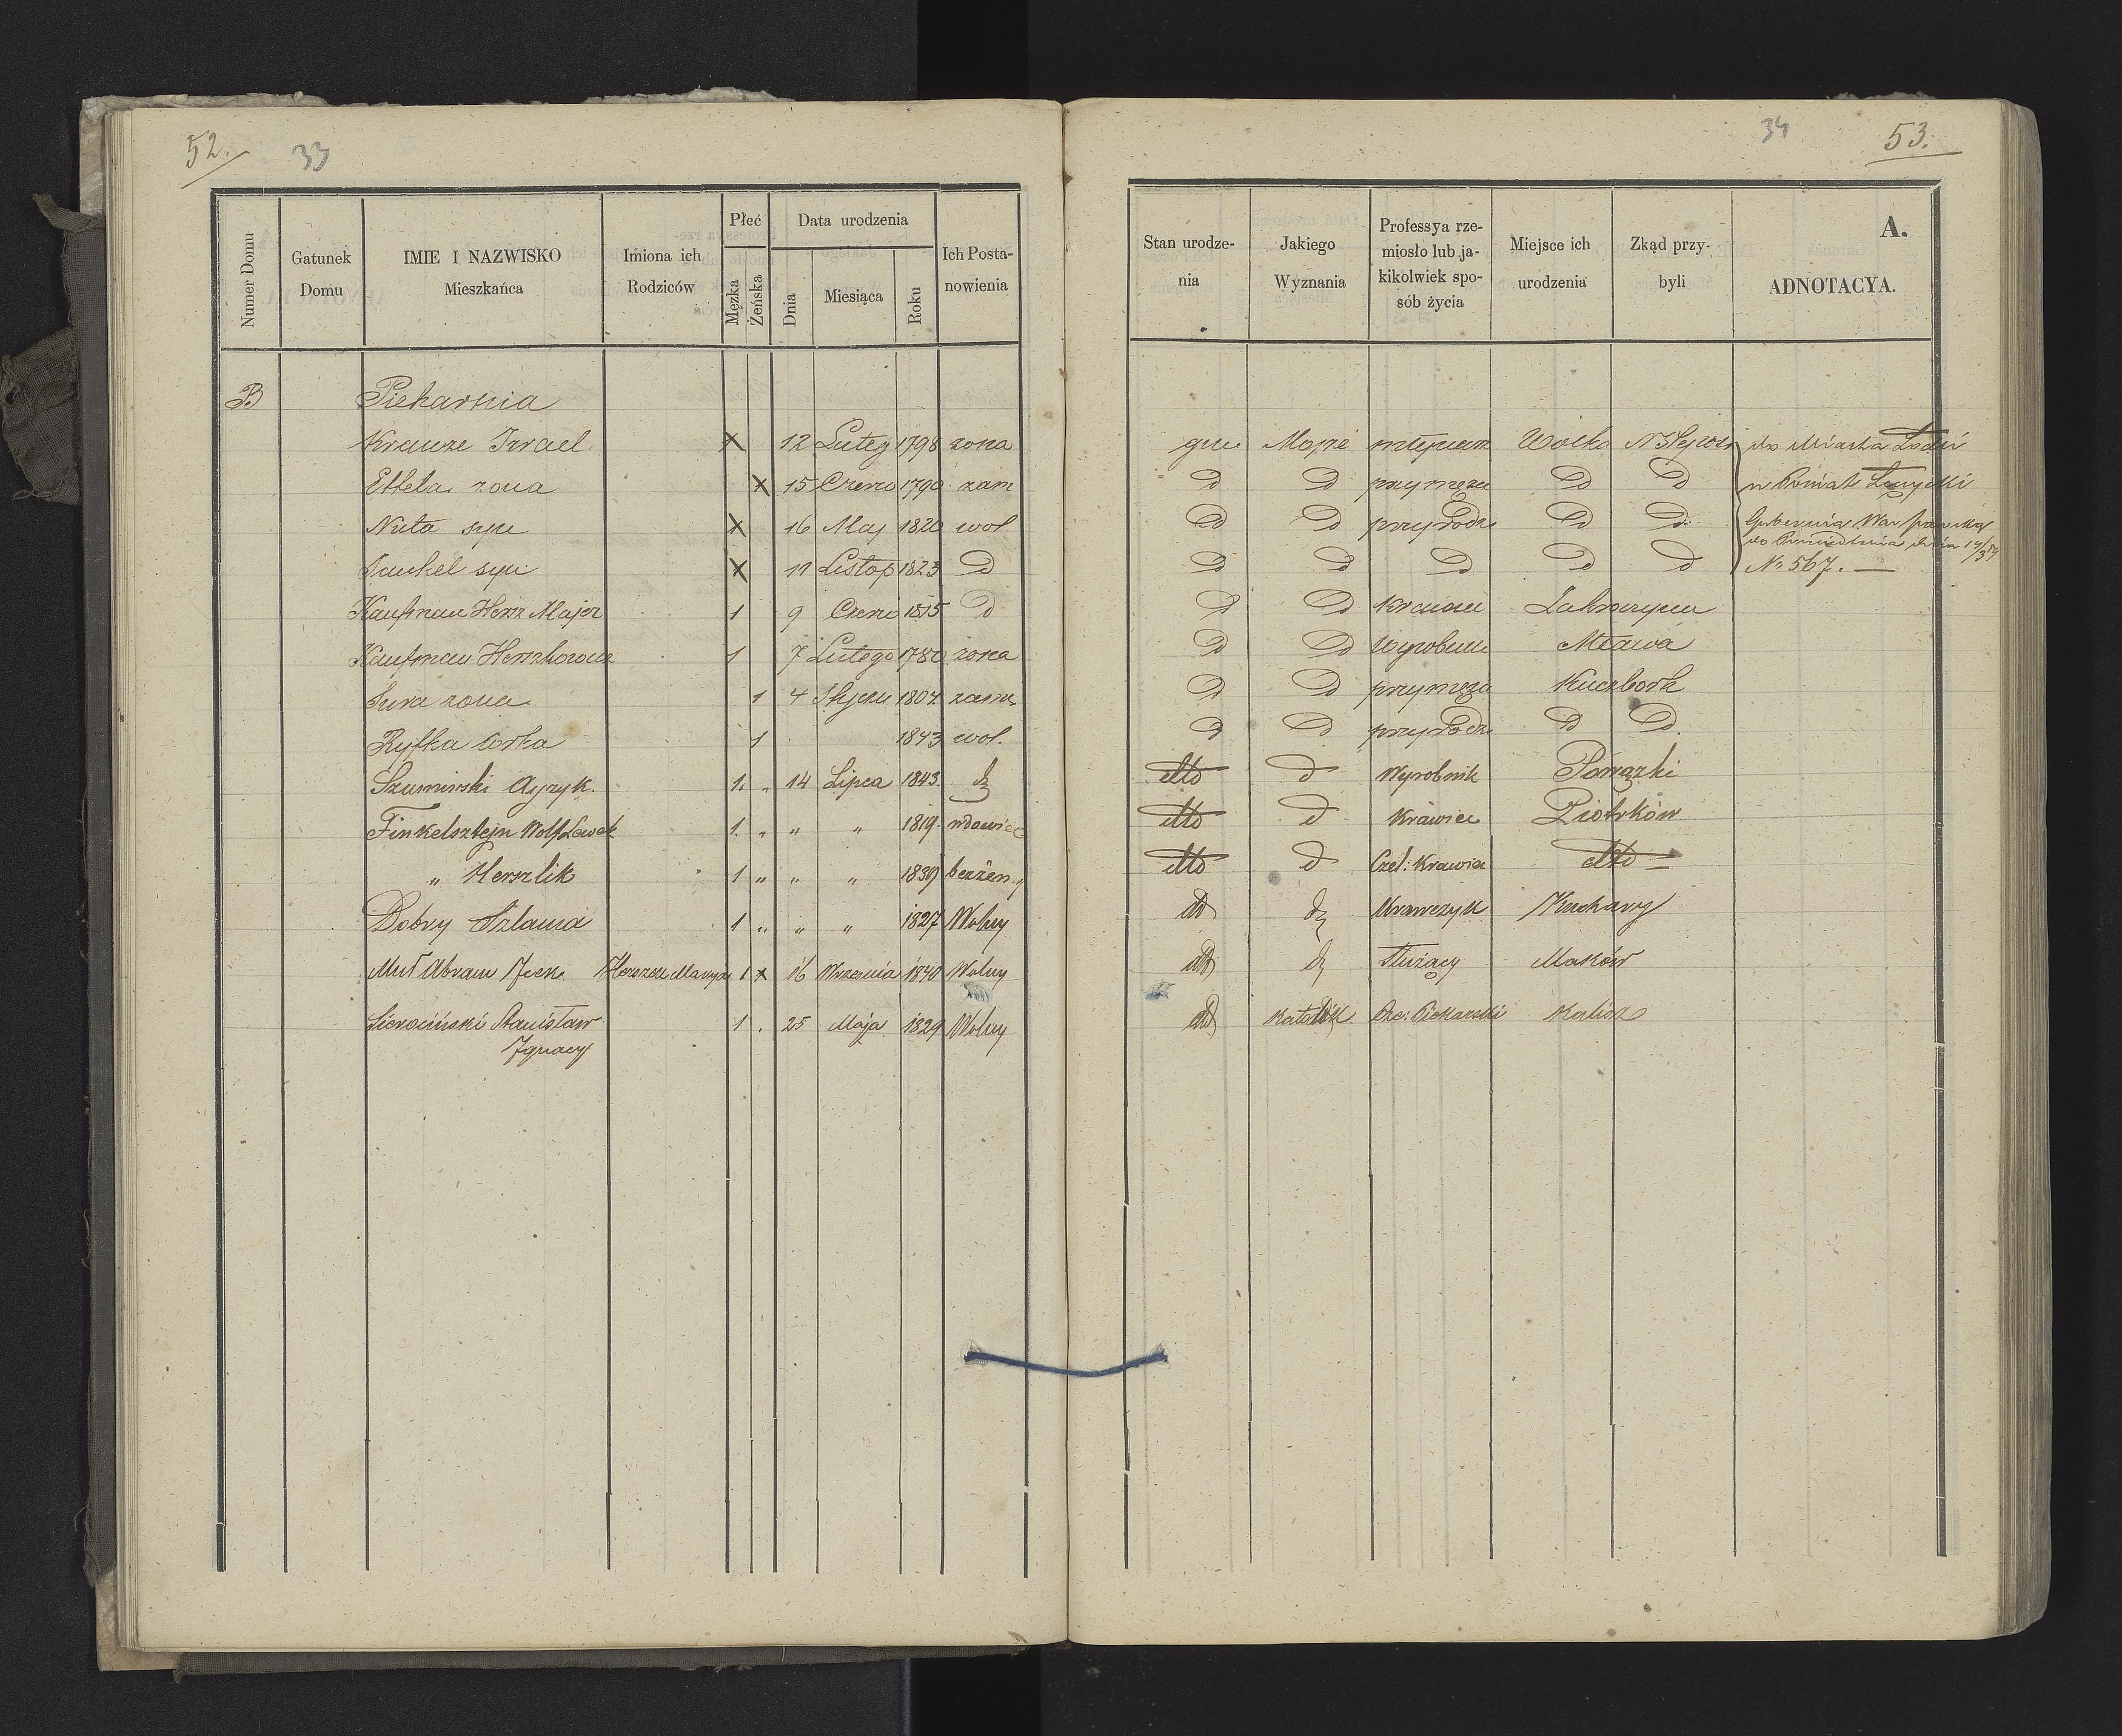 52. 33
Numer Domu
Gatunek Domu
IMIE I NAZWISKO Mieszkańca
Imiona ich Rodziców
Płeć
Męzka
Żeńska
Data urodzenia
Dnia
Miesiąca
Roku
Ich Posta-nowienia
B Piekarnia
Krauze Izrael X 12 Luteg 1798 zona
Ettela zona X 15 Czerw 1790 zam
Nuta syn X 16 Maj 1820 wol
Jankel syn X 11 Listop 1823 D
Kaufman Hersz Majer 1 9 Czerw 1815 D
Kaufman Herszkowicz 1 7 Lutego 1780 zona
Sura zona 1 4 Stycz 1804 zam
Ryfka córka 1 1843 wol.
Szumirski Ayzyk. 1. „ 14 Lipca 1843. d
Finkelsztejn Wolf Lewek 1. „ „ „ 1819. wdowiec
„ Herszlik 1 „ „ „ 1839 bezżen.
Dobry Szlama 1 „ „ „ 1827 Wolny
Muł Abram Icek Herszek Marya 1 x 16 Września 1840 Wolny
Sierociński Stanisław 1 . 25 Maja 1829 Wolny
Ignacy
34 53.
Stan urodze-nia
Jakiego Wyznania
Professya rze-miosło lub ja-kikolwiek spo-sób życia
Miejsce ich urodzenia
Zkąd przy-byli
A.
ADNOTACYA.
gm Mojże Wolka do Miasta Łodzi
D D przy mężu D D w Powiat Łęczycki
D D przy Rodz D D Gubernia Warszawska
do
D D D D D No 567. —
D D Krawiec Zakroczym
D D Wyrobnik Mława
D D przy mężu Kuczbork
D D przy Rodz D D.
dtto d Wyrobnik Powązki
dtto d Krawiec Piotrków
dtto d Czel: Krawiec dtto
dtto d Krawczyk Kuchary
dtto d Służący Maków
dtto Katolik Cze: Piekarski Kalisz